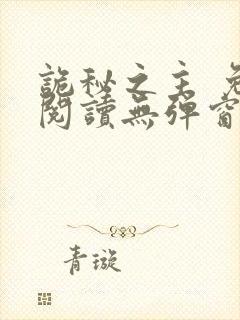 詭秘之主 免
閱讀無彈窗
青璇